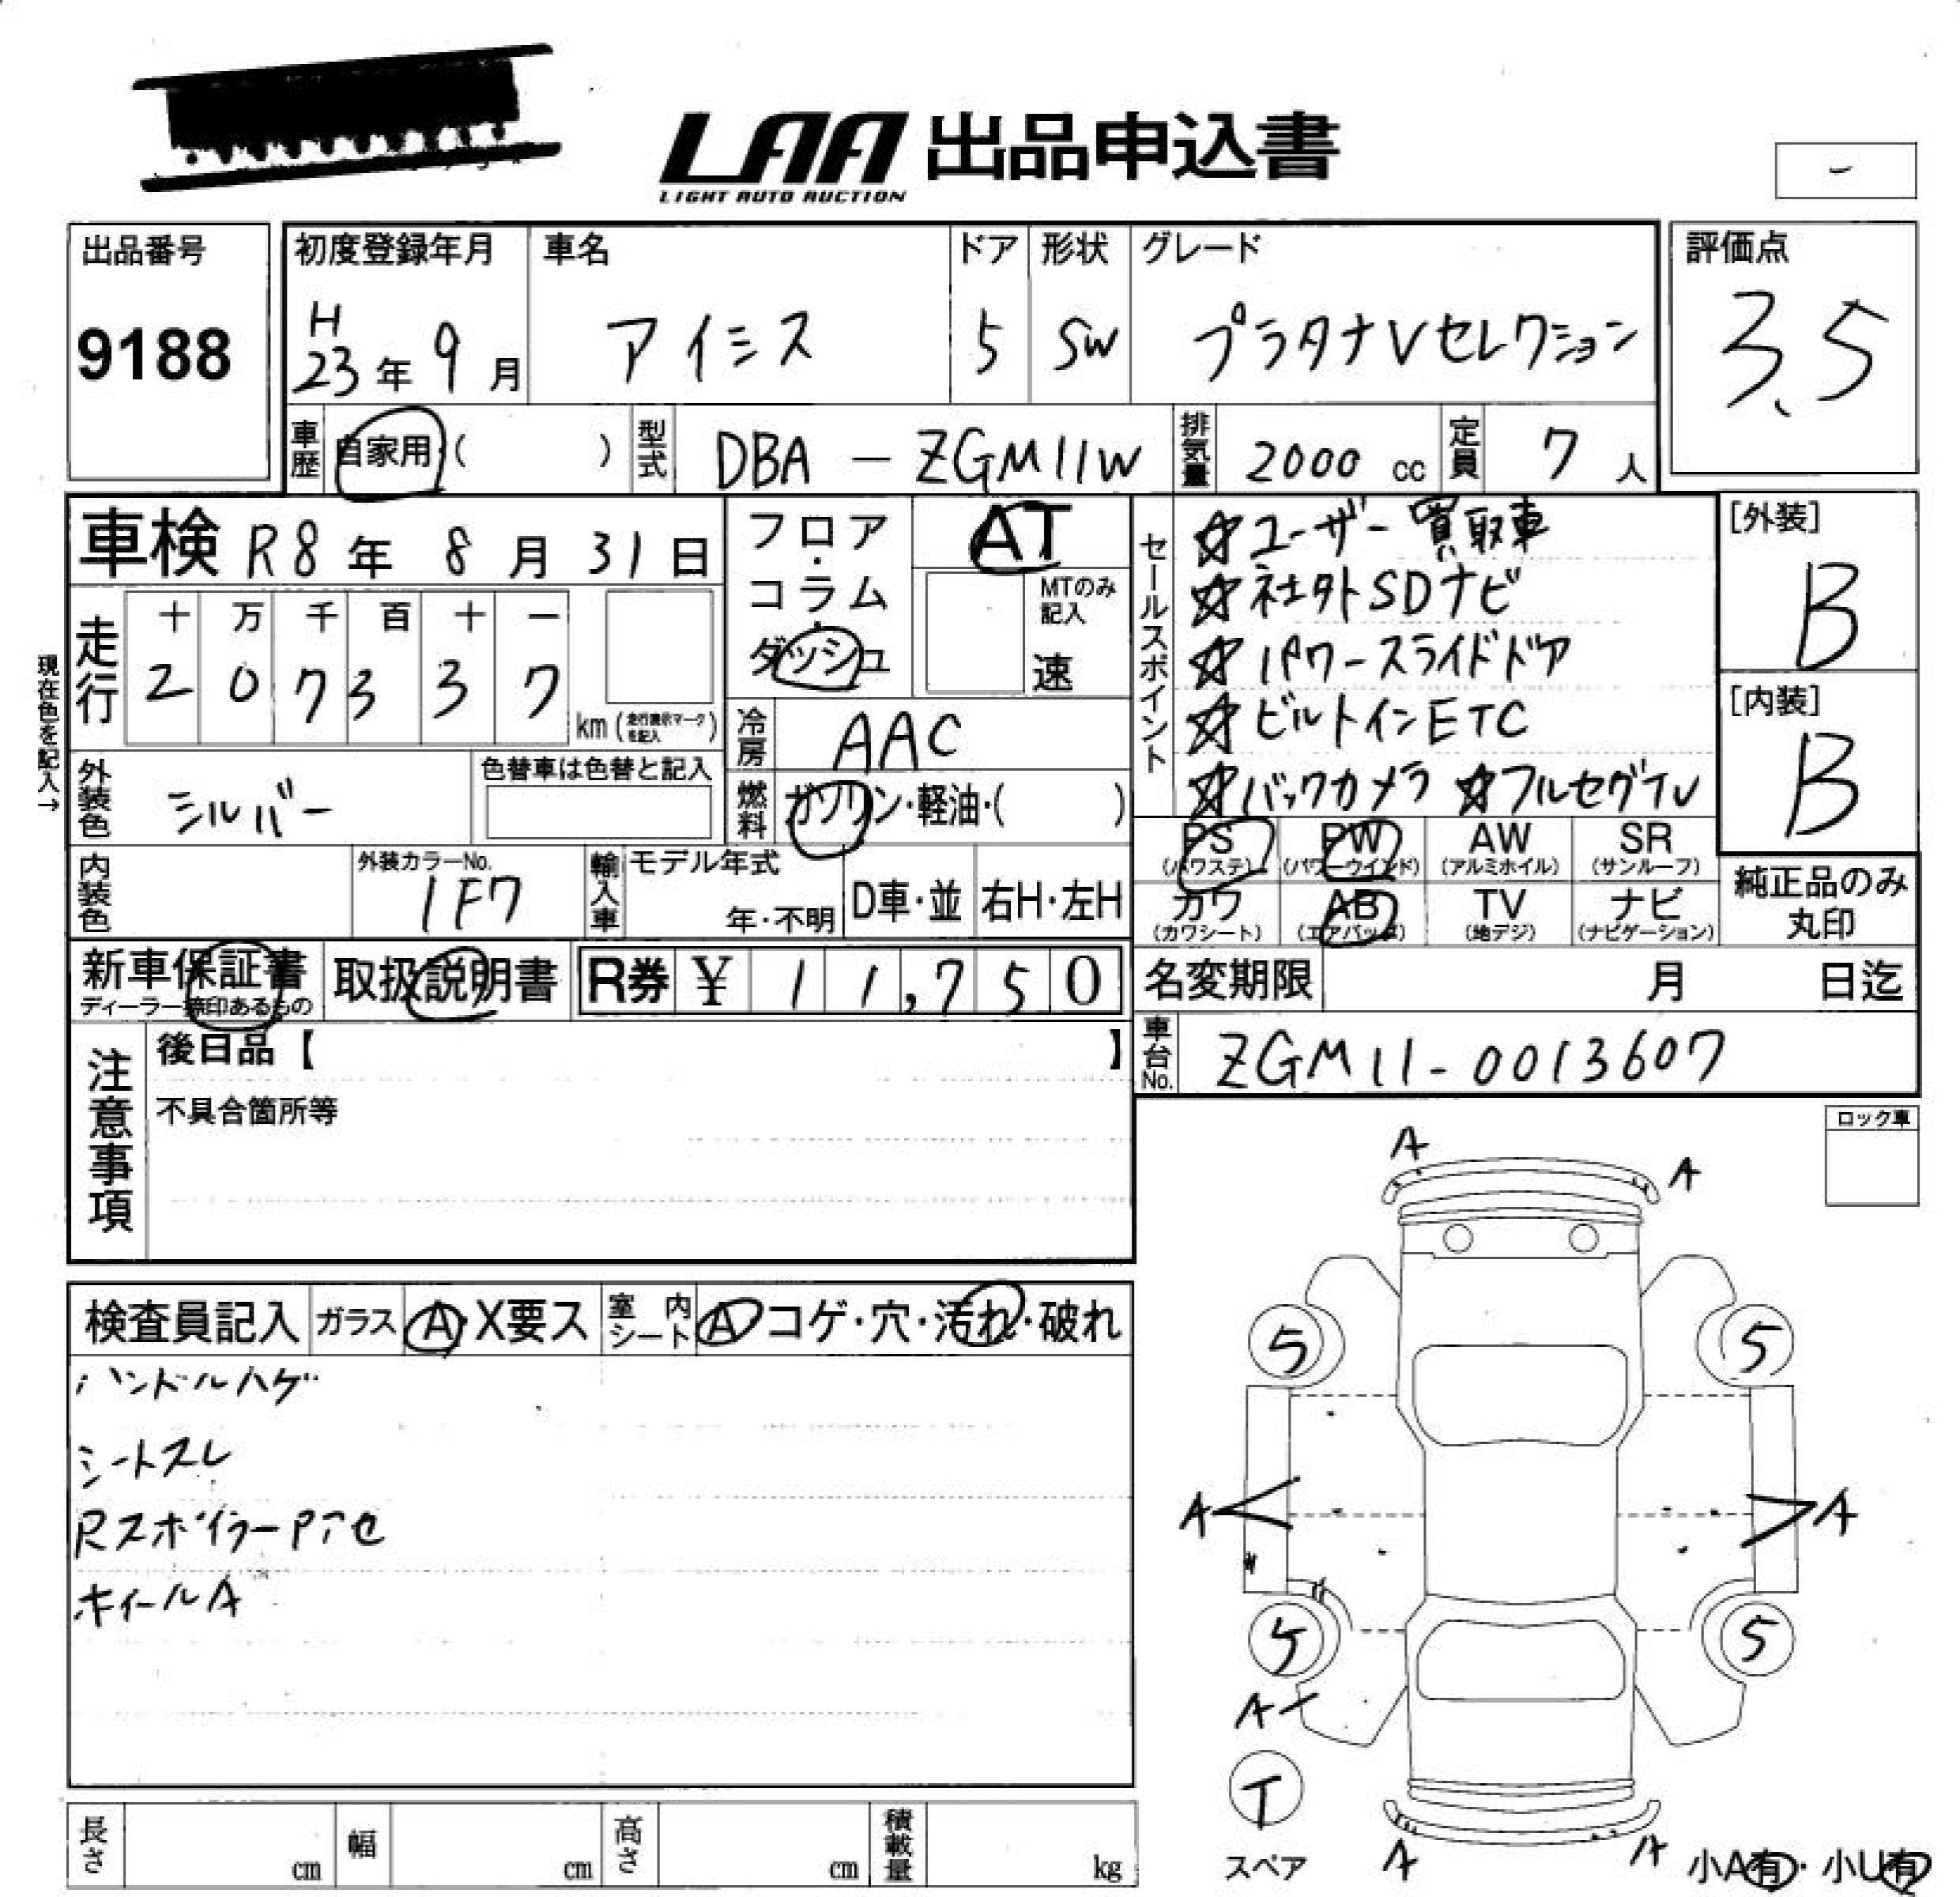 LAA 出品申込書
LIGHT AUTO AUCTION
出品番号
9188
初度登録年月
H
23年9月
車名
アイシス
ドア
5
形状
SW
グレード
プラタナVセレクション
評価点
3.5
車歴 自家用 ( )
型式 DBA-ZGM11W
排気量 2000 cc
定員 7 人
車検 R8年 8月 31日
現在色を記入→
走行
十 万 千 百 十 一
2 0 7 3 3 7
km (走行表示マークを記入)
フロア・コラム・ダッシュ
AT
MTのみ記入
速
冷房 AAC
燃料 ガソリン・軽油・( )
外装色 シルバー
色替車は色替と記入
内装色
外装カラーNo.
1F7
輸入車
モデル年式
年・不明
D車・並
右H・左H
セールスポイント
☆ユーザー買取車
☆社外SDナビ
☆パワースライドドア
☆ビルトインETC
☆バックカメラ ☆フルセグTV
[外装]
B
[内装]
B
PS (パワステ)
PW (パワーウインド)
AW (アルミホイル)
SR (サンルーフ)
カワ (カワシート)
AB (エアバッグ)
TV (地デジ)
ナビ (ナビゲーション)
純正品のみ
丸印
新車保証書
ディーラー捺印あるもの
取扱説明書
R券 ¥ 11,750
名変期限 月 日迄
車台No. ZGM11-0013607
注意事項
後日品【 】
不具合箇所等
ロック車
検査員記入
ガラス A・X要ス
室内シート A コゲ・穴・汚れ・破れ
ハンドルハゲ
シートスレ
Rスポイラー
ホイールA
A
A
5
5
A
A
5
5
A
T
スペア
A
A
小A有・小U有
長さ cm
幅 cm
高さ cm
積載量 kg